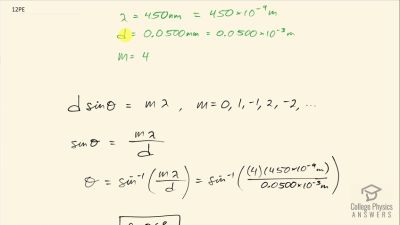 12PE
λ = 450nm = 450×10⁻⁹m
d = 0.0500mm = 0.0500×10⁻³m
m = 4
d sinθ = mλ , m = 0, 1, -1, 2, -2, ...
sinθ = mλ/d
θ = sin⁻¹(mλ/d) = sin⁻¹((4)(450×10⁻⁹m)/0.0500×10⁻³m)
College Physics
ANSWERS